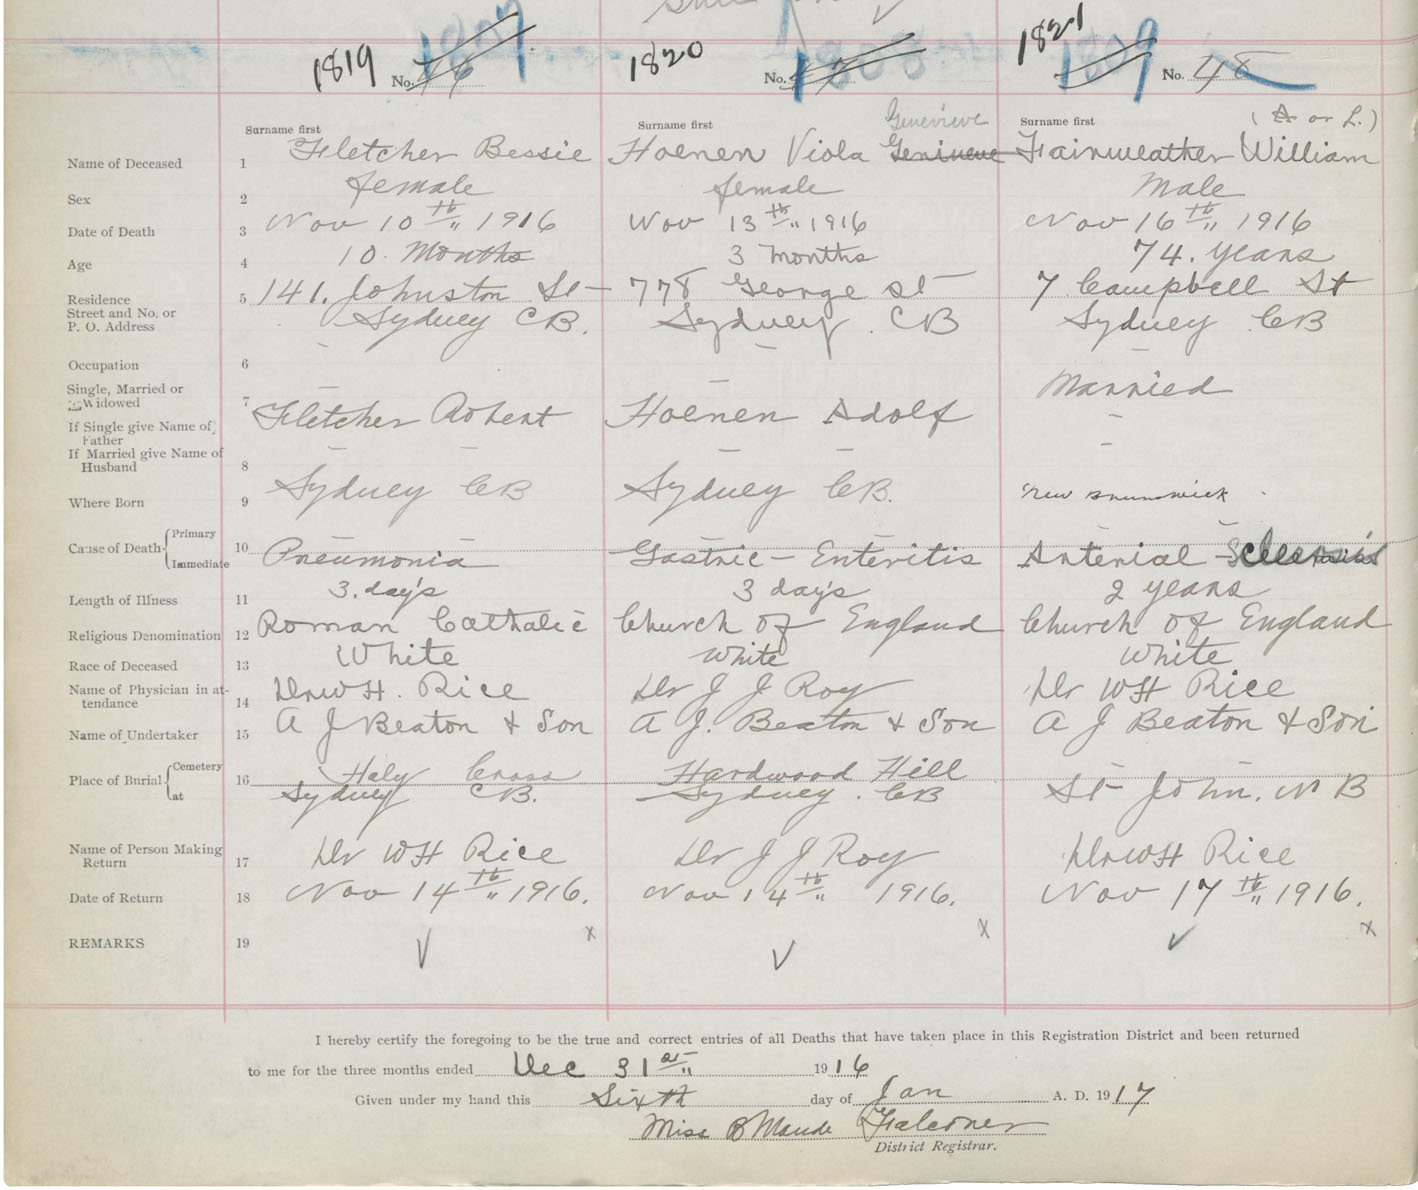 1819 No. 1820 No. 1821 1809 No. 48
Surname first Surname first Genevieve Surname first (A or L.)
Name of Deceased 1 Fletcher Bessie Hoenen Viola Fairweather William
Sex 2 female female Male
Date of Death 3 Nov 10th 1916 Nov 13th 1916 Nov 16th 1916
Age 4 10. Months 3 months 74. years
Residence 5 141. Johnston St 778 George St 7 Campbell St
Street and No. or
P. O. Address Sydney CB. Sydney. CB Sydney CB
Occupation 6 – – –
Single, Married or – – Married
Widowed 7
If Single give Name of Father Fletcher Robert Hoenen Adolf –
If Married give Name of Husband 8 – – –
Where Born 9 Sydney CB Sydney CB. New Brunswick
Cause of Death { Primary – – –
Immediate 10 Pneumonia Gastric – Enteritis Arterial
Length of Illness 11 3. day's 3 day's 2 years
Religious Denomination 12 Roman Catholic Church of England Church of England
Race of Deceased 13 White White White
Name of Physician in attendance 14 Dr WH. Rice Dr J J Roy Dr WH Rice
Name of Undertaker 15 A J Beaton & Son A J. Beaton & Son A J Beaton & Son
Place of Burial { Cemetery 16 Holy Cross Hardwood Hill
at Sydney CB. Sydney. CB St John. N B
Name of Person Making Return 17 Dr WH Rice Dr J J Roy Dr WH Rice
Date of Return 18 Nov 14th 1916. Nov 14th 1916. Nov 17th 1916.
REMARKS 19 √ x √ x √ x
I hereby certify the foregoing to be the true and correct entries of all Deaths that have taken place in this Registration District and been returned
to me for the three months ended Dec 31st 1916
Given under my hand this Sixth day of Jan A. D. 1917
Miss B Maude Falconer
District Registrar.